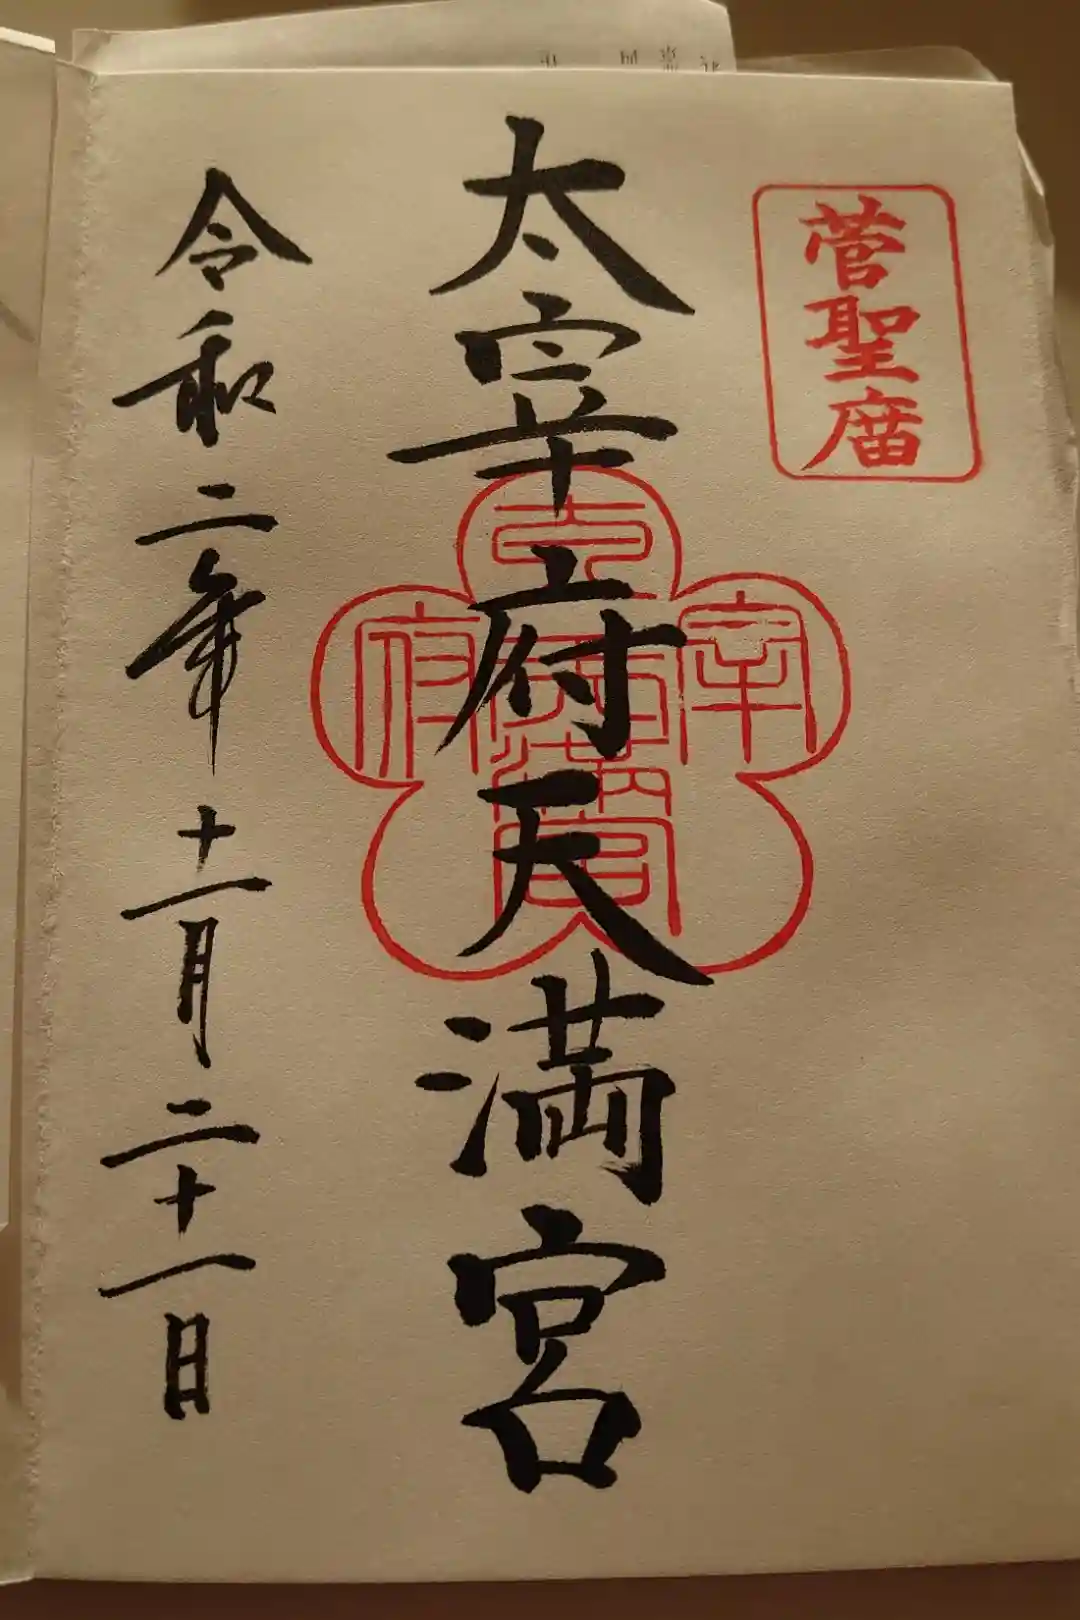 菅聖庿
太宰府天満宮
令和二年十一月二十一日